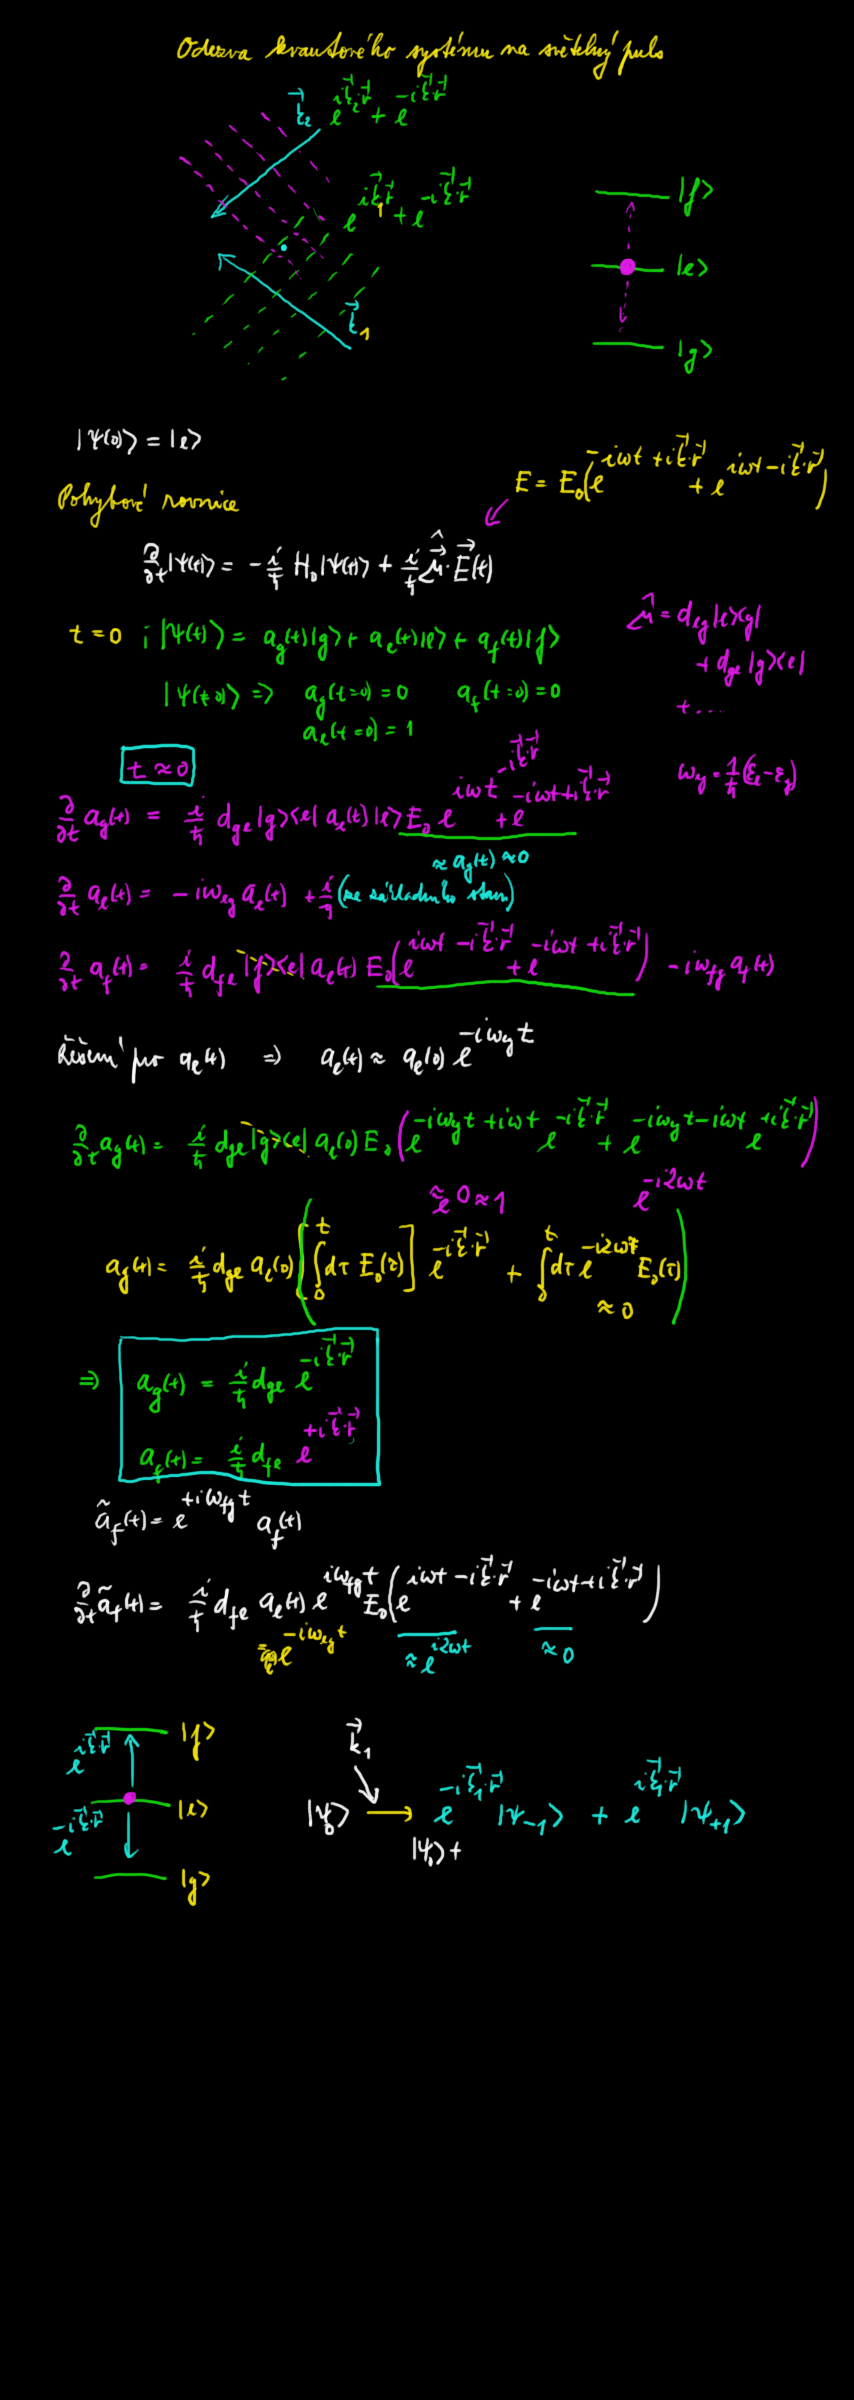 Odezva kvantového systému na světelný puls
\vec{k}_2 e^{i\vec{k}_2·\vec{r}} + e^{-i\vec{k}·\vec{r}}
e^{i\vec{k}_1·\vec{r}} + e^{-i\vec{k}·\vec{r}}
|f>
|e>
\vec{k}_1
|g>
|Ψ(0)> = |e>
E = E_0(e^{-iωt + i\vec{k}·\vec{r}} + e^{iωt - i\vec{k}·\vec{r}})
Pohybové rovnice
∂/∂t |Ψ(t)> = -i/ħ H_0 |Ψ(t)> + i/ħ \hat{\vec{μ}}·\vec{E}(t)
t = 0 i |Ψ(t)> = a_g(t)|g> + a_e(t)|e> + a_f(t)|f>
\hat{μ} = d_{eg}|e><g|
+ d_{ge}|g><e|
+ ...
|Ψ(t=0)> => a_g(t=0) = 0 a_f(t=0) = 0
a_e(t=0) = 1
t ≈ 0
ω_{eg} = 1/ħ (ε_e - ε_g)
∂/∂t a_g(t) = i/ħ d_{ge} |g><e| a_e(t) |e> E_0 e^{iωt - i\vec{k}·\vec{r}} + e^{-iωt + i\vec{k}·\vec{r}}
≈ a_g(t) ≈ 0
∂/∂t a_e(t) = -iω_{eg} a_e(t) + i/ħ (ze základního stavu)
∂/∂t a_f(t) = i/ħ d_{fe} |f><e| a_e(t) E_0(e^{iωt - i\vec{k}·\vec{r}} + e^{-iωt + i\vec{k}·\vec{r}}) - iω_{fg} a_f(t)
Řešení pro a_e(t) => a_e(t) ≈ a_e(0) e^{-iω_{eg}t}
∂/∂t a_g(t) = i/ħ d_{ge} |g><e| a_e(0) E_0 (e^{-iω_{eg}t + iωt} e^{-i\vec{k}·\vec{r}} + e^{-iω_{eg}t - iωt} e^{+i\vec{k}·\vec{r}})
≈ e^0 ≈ 1 e^{-i2ωt}
a_g(t) = i/ħ d_{ge} a_e(0) ([∫_0^t dτ E_0(τ)] e^{-i\vec{k}·\vec{r}} + ∫_0^t dτ e^{-i2ωτ} E_0(τ))
≈ 0
=> a_g(t) = i/ħ d_{ge} e^{-i\vec{k}·\vec{r}}
a_f(t) = i/ħ d_{fe} e^{+i\vec{k}·\vec{r}}
\tilde{a}_f(t) = e^{+iω_{fg}t} a_f(t)
∂/∂t \tilde{a}_f(t) = i/ħ d_{fe} a_e(t) e^{iω_{fg}t} E_0(e^{iωt - i\vec{k}·\vec{r}} + e^{-iωt + i\vec{k}·\vec{r}})
e^{-iω_{eg}t} ≈ e^{i2ωt} ≈ 0
e^{i\vec{k}·\vec{r}} |f>
\vec{k}_1
e^{-i\vec{k}·\vec{r}} |e>
|g>
|Ψ_0> → e^{-i\vec{k}_1·\vec{r}} |Ψ_{-1}> + e^{i\vec{k}_1·\vec{r}} |Ψ_{+1}>
|Ψ_0> +